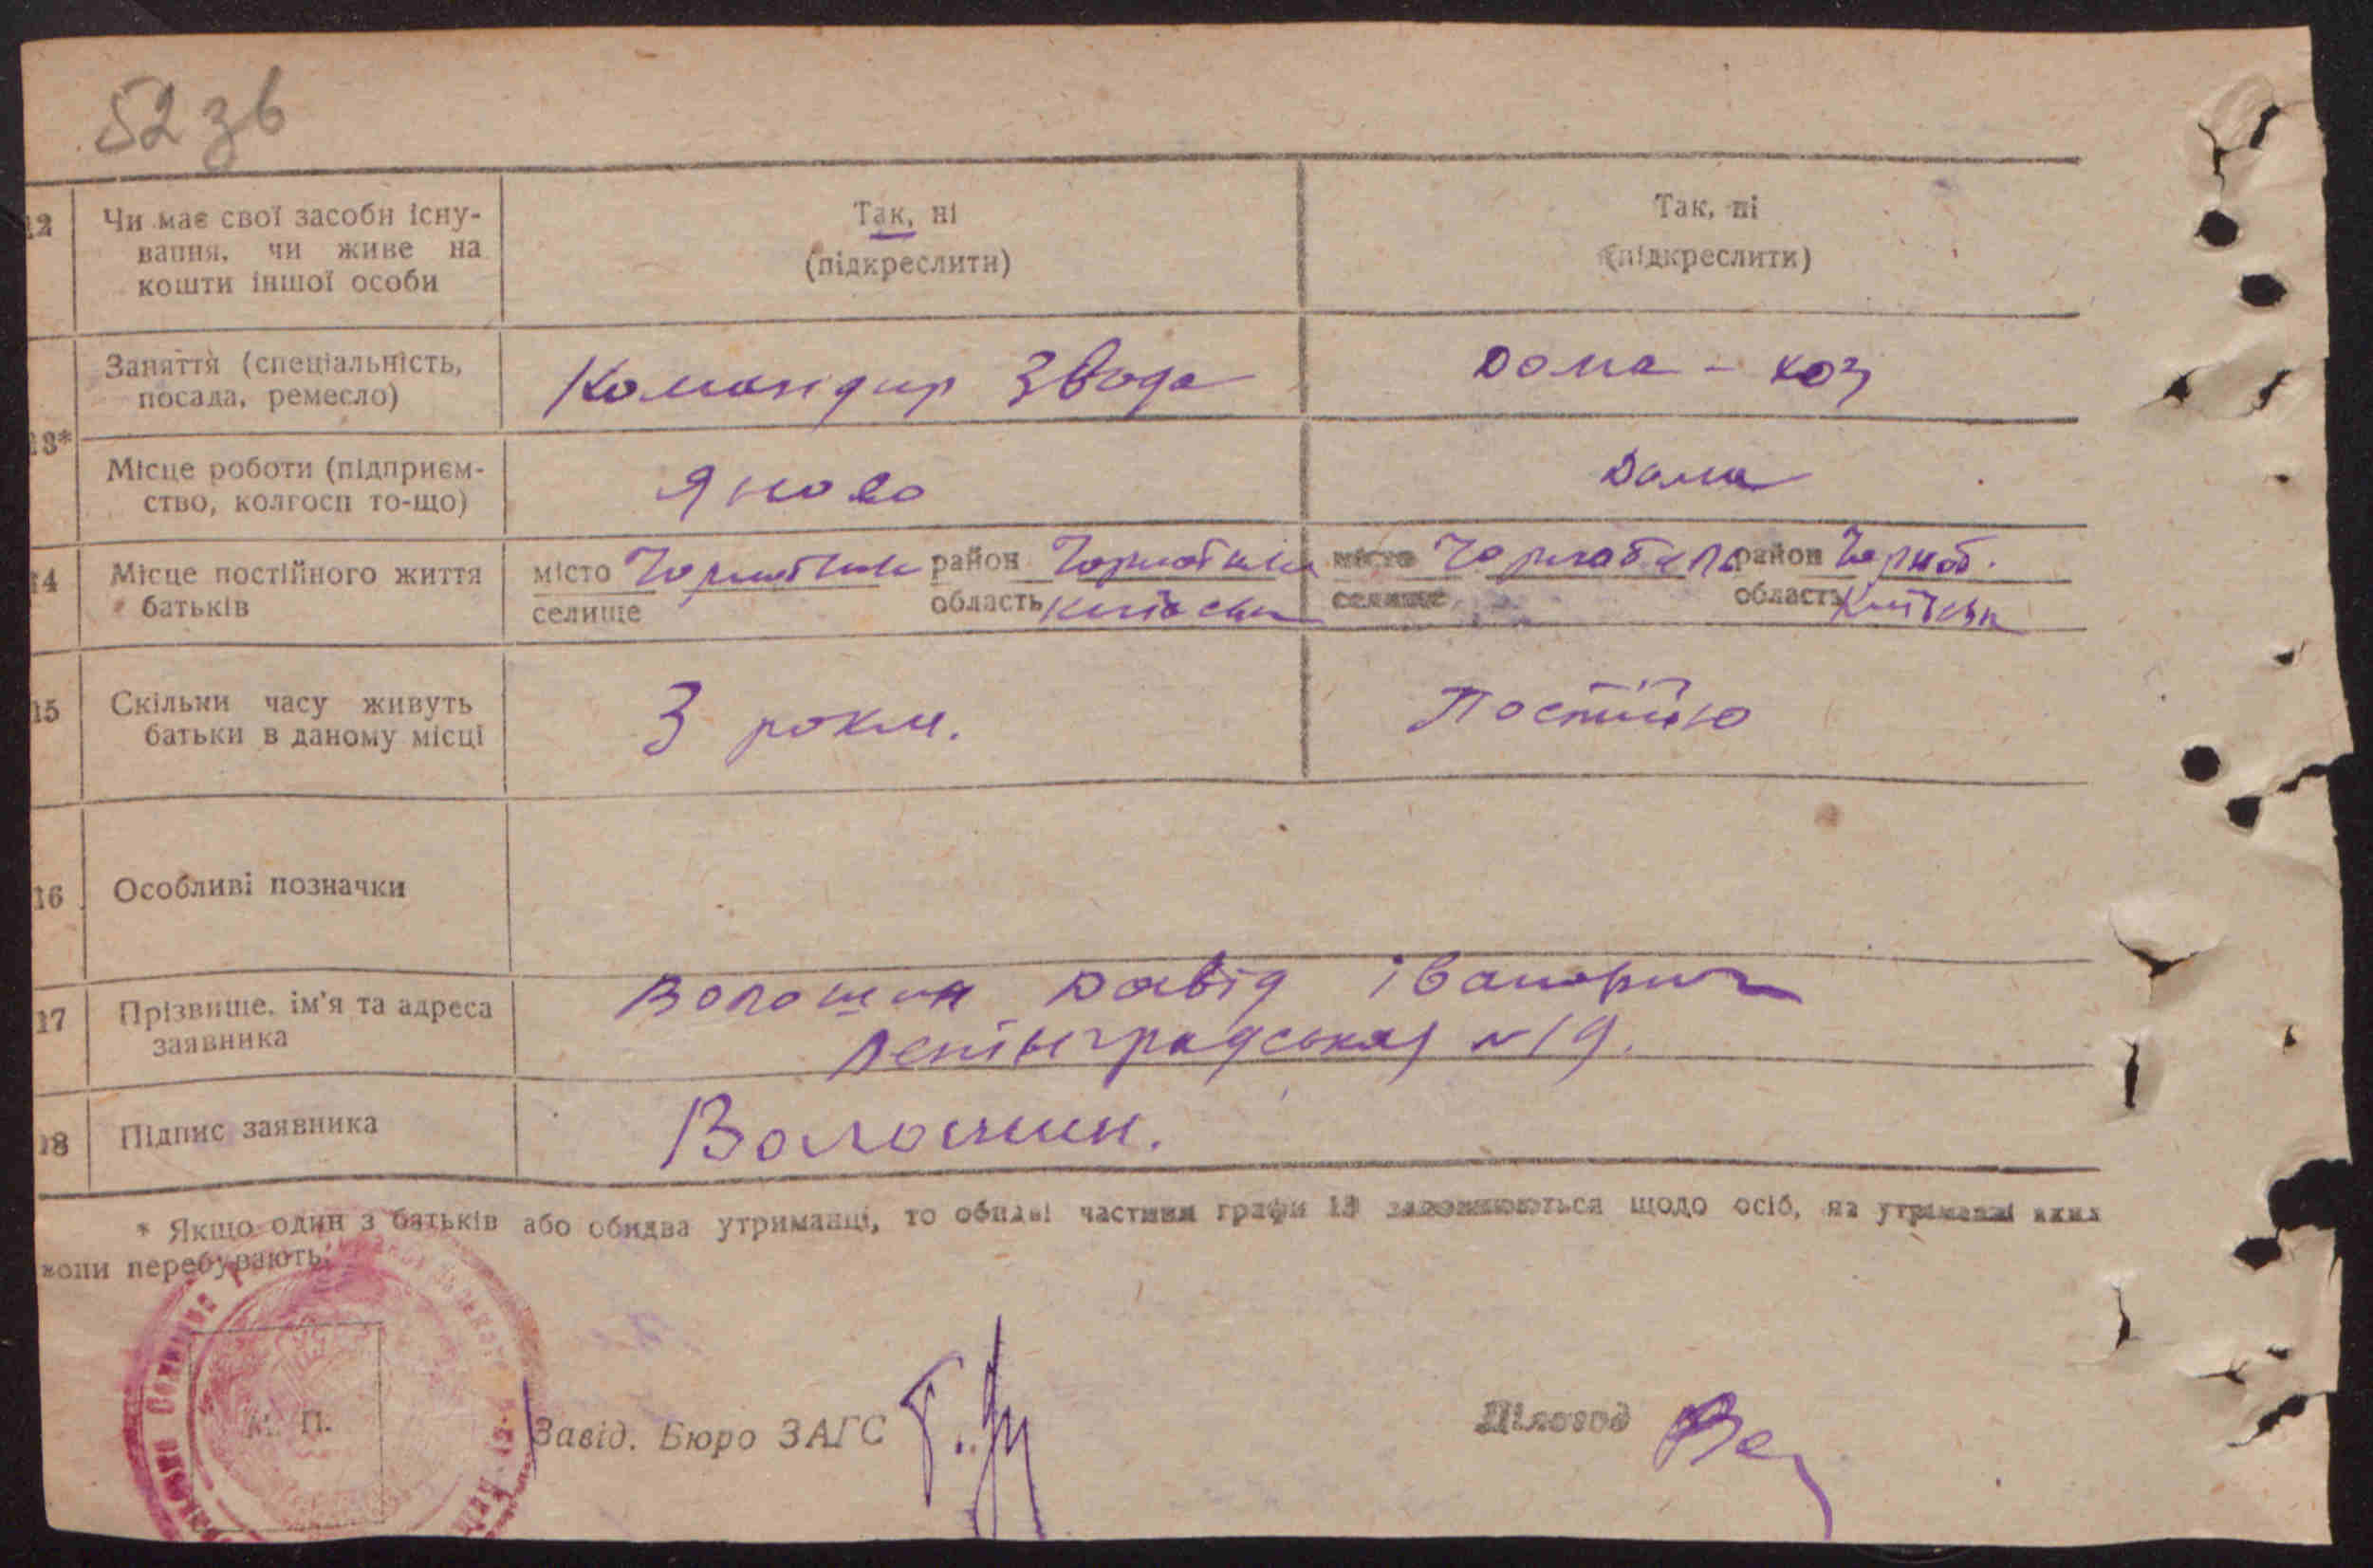 52 зв
12 Чи має свої засоби існу- Так, ні Так, ні
вання, чи живе на (підкреслити) (підкреслити)
кошти іншої особи
Заняття (спеціальність, Командир Звода Дома - хоз
посада, ремесло)
13*
Місце роботи (підприєм- Яново Дома
ство, колгосп то-що)
14 Місце постійного життя місто Чорнобиль район Чорнобильс місто Чорнобиль район Чорноб.
батьків селище область Київськ селище область Київськ
15 Скільки часу живуть 3 роки. Постійно
батьки в даному місці
16 Особливі позначки
Волошин Давід Іванович
17 Прізвище, ім'я та адреса
заявника Ленінградська №19.
18 Підпис заявника Волошин.
* Якщо один з батьків або обидва утриманці, то обидві частини графи 13 заповнюються щодо осіб, на утриманні яких
вони перебувають.
М. П.
Завід. Бюро ЗАГС Діловод